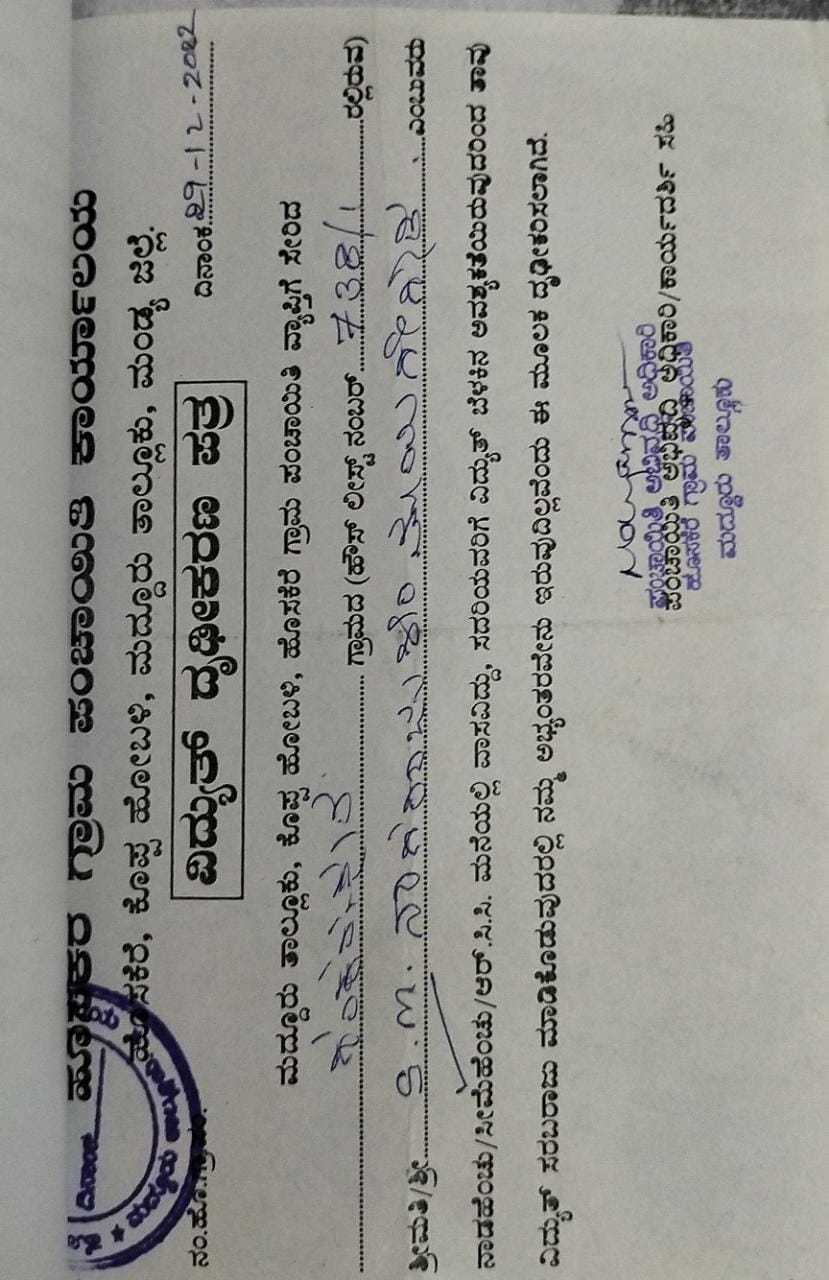 ಹೊಸಕೆರೆ ಗ್ರಾಮ ಪಂಚಾಯಿತಿ ಕಾರ್ಯಾಲಯ
ಹೊಸಕೆರೆ, ಕೊಪ್ಪ ಹೋಬಳಿ, ಮದ್ದೂರು ತಾಲ್ಲೂಕು, ಮಂಡ್ಯ ಜಿಲ್ಲೆ.
ನಂ.ಹೊ.ಗ್ರಾ.ಪಂ. ದಿನಾಂಕ 29-12-2022
ವಿದ್ಯುತ್ ದೃಢೀಕರಣ ಪತ್ರ
ಮದ್ದೂರು ತಾಲ್ಲೂಕು, ಕೊಪ್ಪ ಹೋಬಳಿ, ಹೊಸಕೆರೆ ಗ್ರಾಮ ಪಂಚಾಯಿತಿ ವ್ಯಾಪ್ತಿಗೆ ಸೇರಿದ
ಗ್ರಾಮದ (ಹೌಸ್ ಲೀಸ್ಟ್ ನಂಬರ್ 738/1 ರಲ್ಲಿರುವ)
ಶ್ರೀಮತಿ/ಶ್ರೀ ನಾಗರಾಜು ಎಂಬುವರು
ನಾಡಹೆಂಚು/ಸೀಮೆಹೆಂಚು/ಆರ್.ಸಿ.ಸಿ. ಮನೆಯಲ್ಲಿ ವಾಸವಿದ್ದು, ಸದರಿಯವರಿಗೆ ವಿದ್ಯುತ್ ಬೆಳಕಿನ ಅವಶ್ಯಕತೆಯಿರುವುದರಿಂದ ತಾವು
ವಿದ್ಯುತ್ ಸರಬರಾಜು ಮಾಡಿಕೊಡುವುದರಲ್ಲಿ ನಮ್ಮ ಅಭ್ಯಂತರವೇನು ಇರುವುದಿಲ್ಲವೆಂದು ಈ ಮೂಲಕ ದೃಢೀಕರಿಸಲಾಗಿದೆ.
ಪಂಚಾಯಿತಿ ಅಭಿವೃದ್ಧಿ ಅಧಿಕಾರಿ
ಪಂಚಾಯಿತಿ ಅಭಿವೃದ್ಧಿ ಅಧಿಕಾರಿ/ಕಾರ್ಯದರ್ಶಿ ಸಹಿ
ಹೊಸಕೆರೆ ಗ್ರಾಮ ಪಂಚಾಯಿತಿ
ಮದ್ದೂರು ತಾಲ್ಲೂಕು
ದಿನಾಂಕ